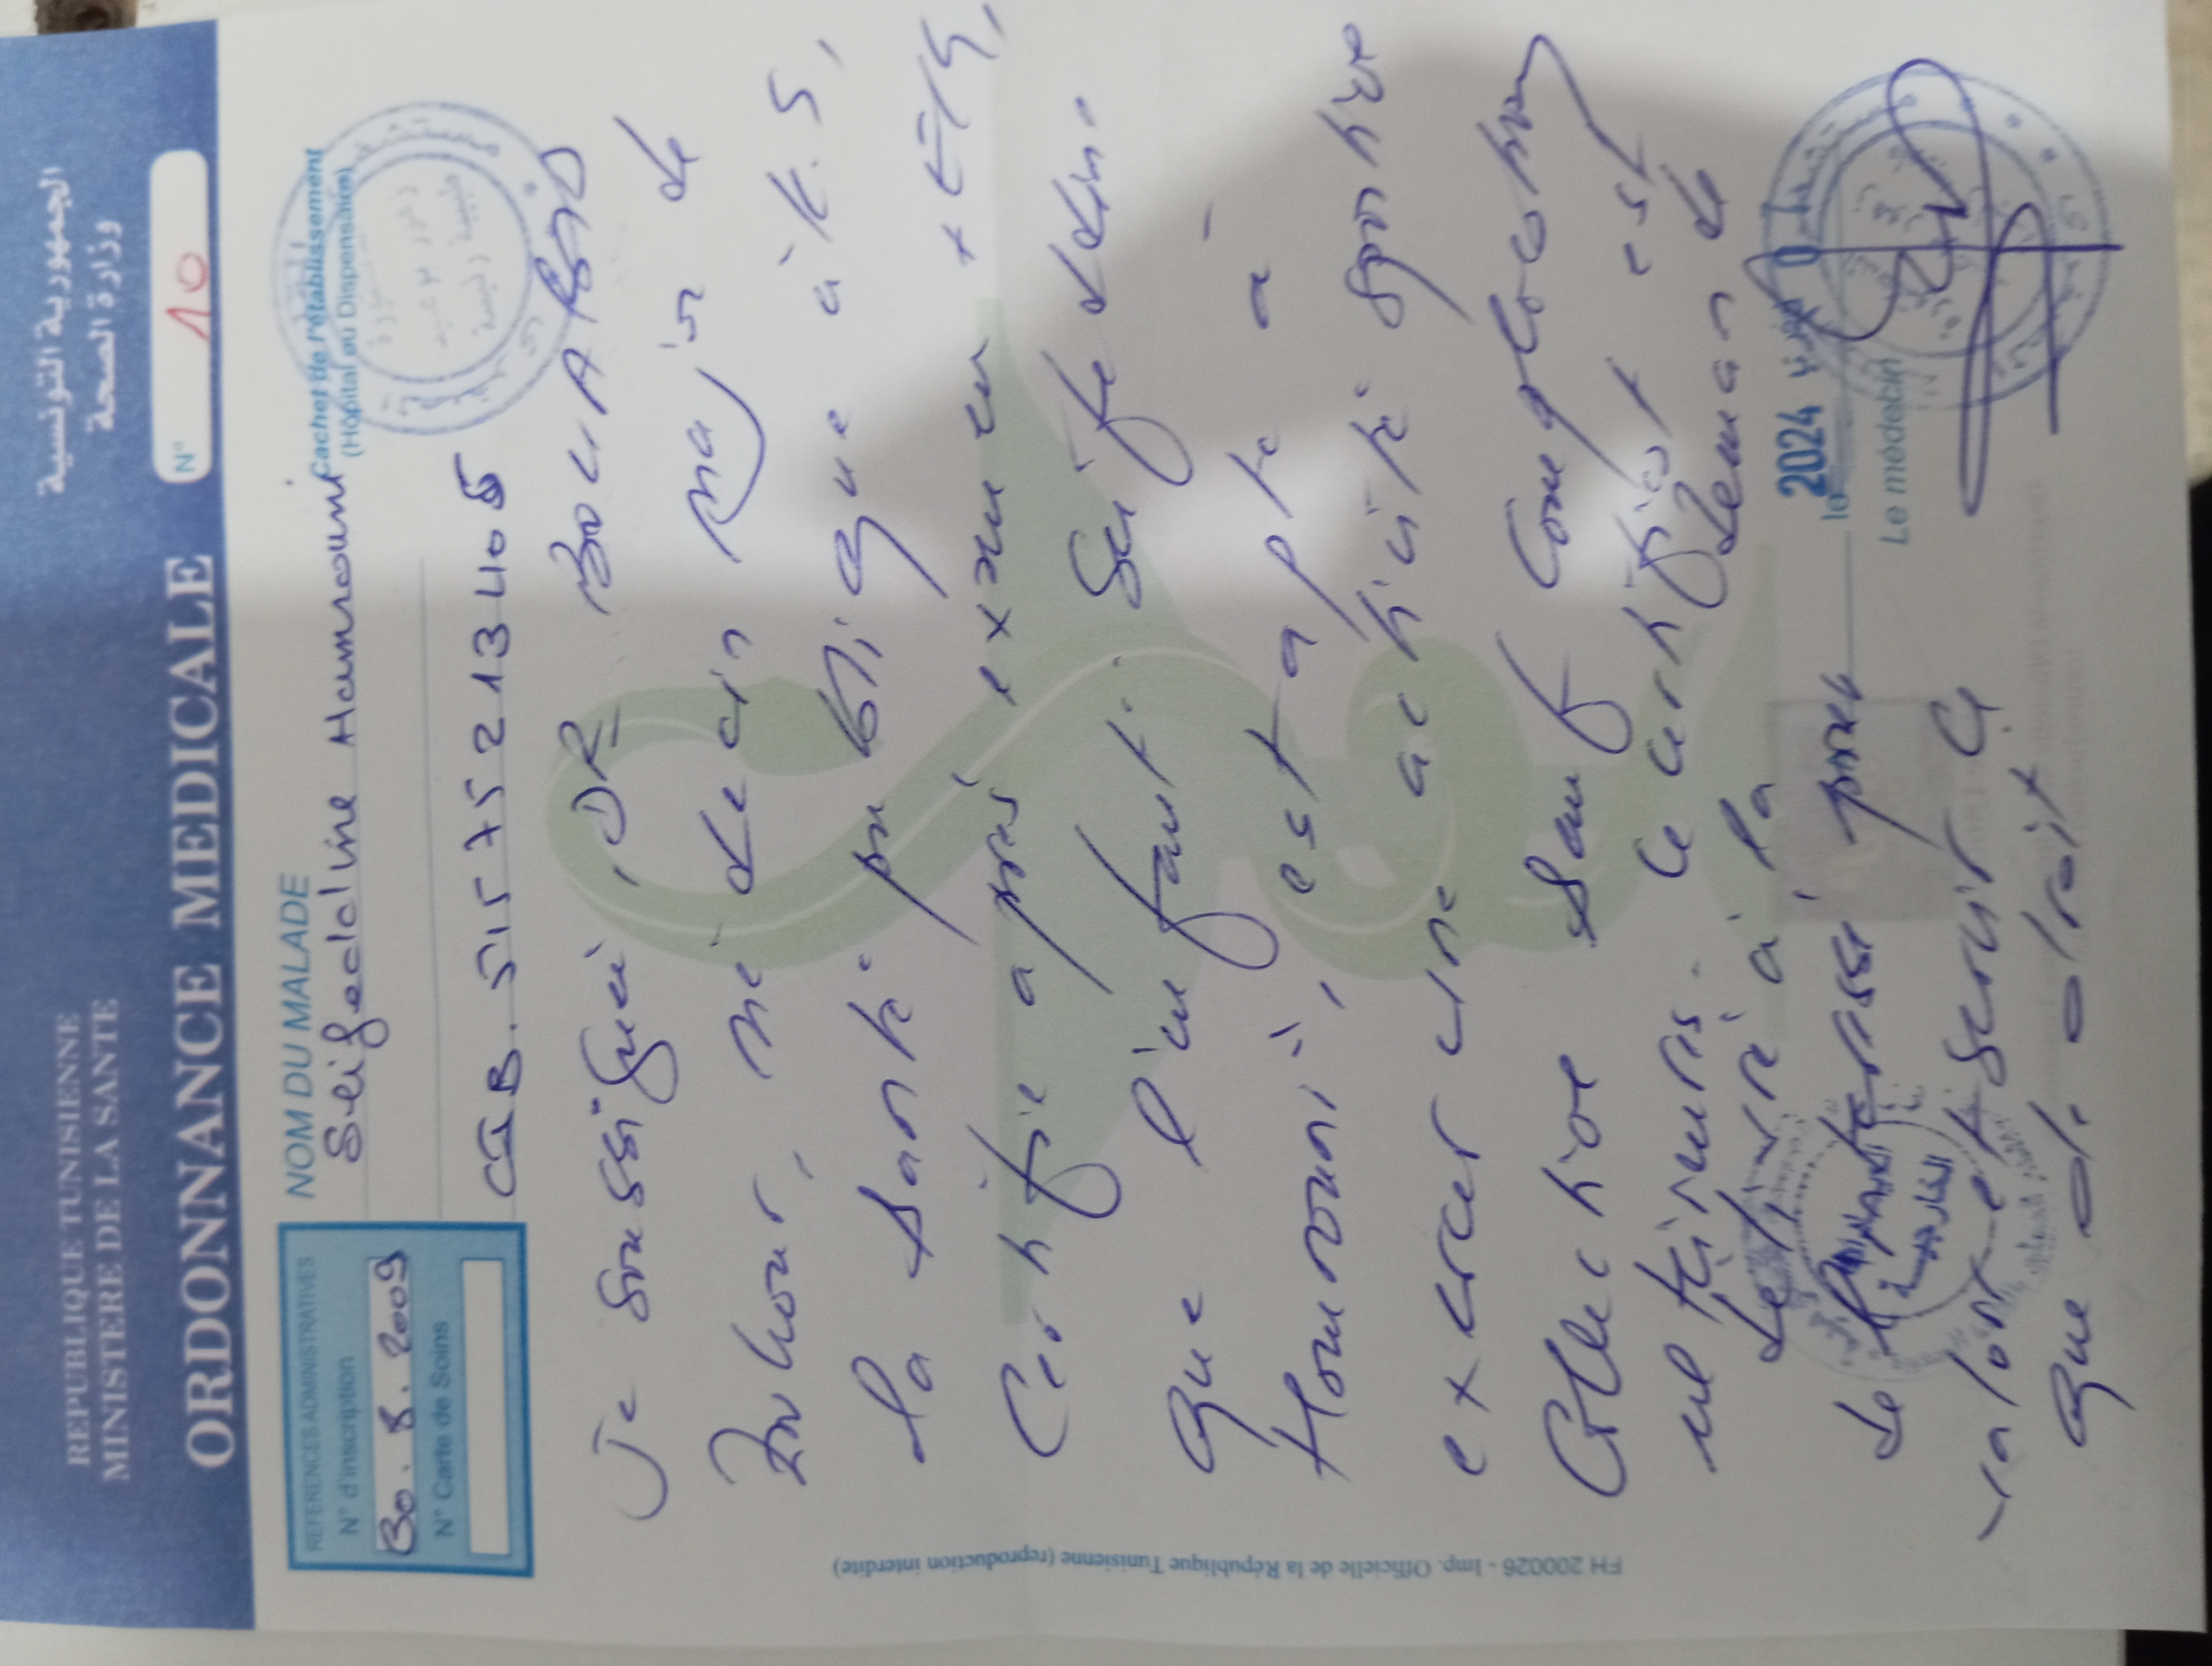 REPUBLIQUE TUNISIENNE
MINISTERE DE LA SANTE
الجمهورية التونسية
وزارة الصحة
ORDONNANCE MEDICALE
N° 10
REFERENCES ADMINISTRATIVES
N° d'inscription
30.8.2009
N° Carte de Soins
NOM DU MALADE
Seifeddine Hamrouni
Cachet de l'établissement
(Hôpital ou Dispensaire)
Je soussigné, DR
médecin major de
la santé publique à K.S,
Certifie après examen
que l'enfant: Seifeddine
Hamrouni, est apte à
exercer une activité sportive
Collective sauf complication
ultérieurs. Ce certificat est
délivré à la demande
de l'intéressé pour
valoir et servir ce
que de droit
le 2024
Le médecin
FH 200026 - Imp. Officielle de la République Tunisienne (reproduction interdite)